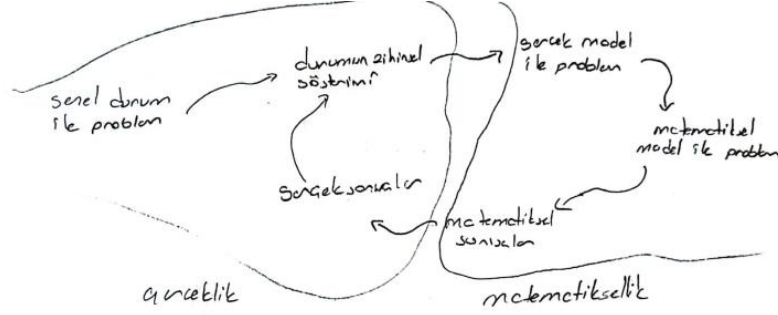 genel durum
ile problem
durumun zihinsel
gösterimi
gerçek model
ile problem
matematiksel
model ile problem
matematiksel
sonuçlar
gerçek sonuçlar
gerçeklik
matematiksellik